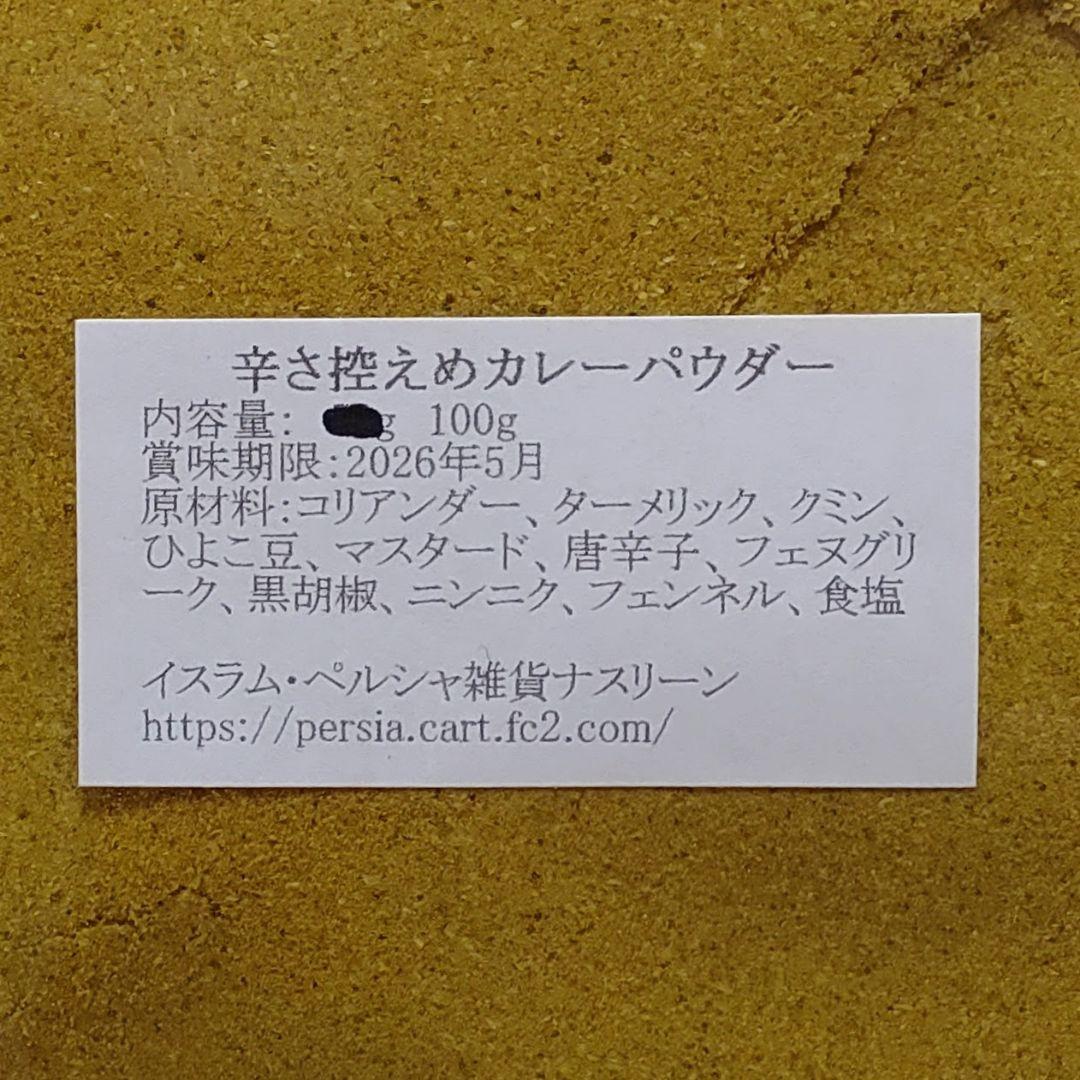 辛さ控えめカレーパウダー
内容量： g 100g
賞味期限：2026年5月
原材料：コリアンダー、ターメリック、クミン、
ひよこ豆、マスタード、唐辛子、フェヌグリ
ーク、黒胡椒、ニンニク、フェンネル、食塩
イスラム・ペルシャ雑貨ナスリーン
https://persia.cart.fc2.com/